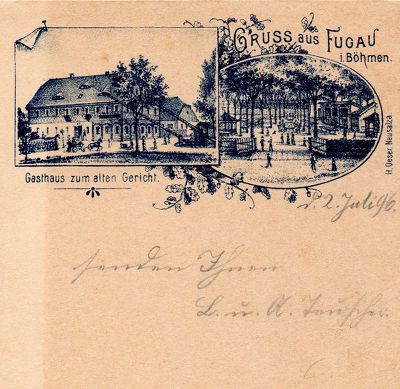 GRUSS aus FUGAU
i. Böhmen.
H. Oeser, Neusalza
Gasthaus zum alten Gericht.
d. 2. Juli 96.
senden Ihnen
L. u. A. Teuscher.